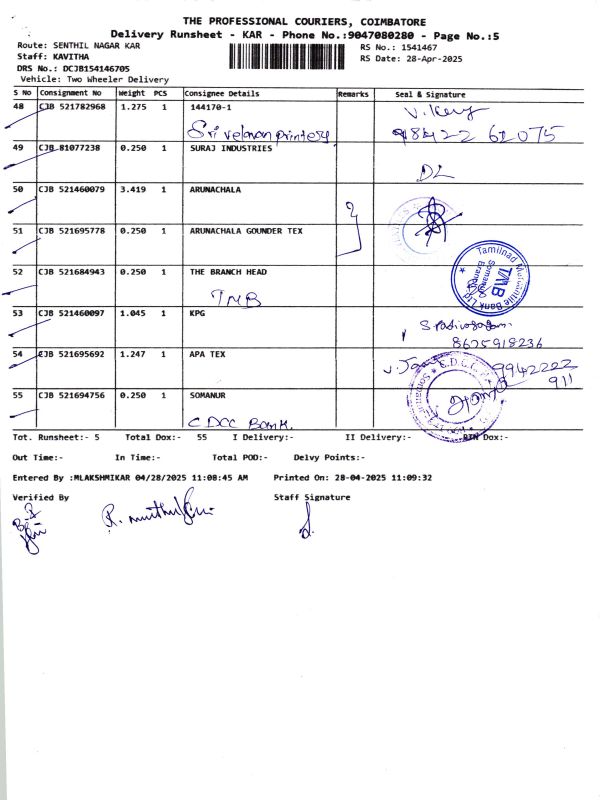 THE PROFESSIONAL COURIERS, COIMBATORE
Delivery Runsheet - KAR - Phone No.:9047080280 - Page No.:5
Route: SENTHIL NAGAR KAR
RS No.: 1541467
Staff: KAVITHA
RS Date: 28-Apr-2025
DRS No.: DCJB154146705
Vehicle: Two Wheeler Delivery
S No Consignment No Weight PCS Consignee Details Remarks Seal & Signature
48 CJB 521782968 1.275 1 144170-1
Sri velavan printers
49 CJB 81077238 0.250 1 SURAJ INDUSTRIES
DL
50 CJB 521460079 3.419 1 ARUNACHALA
51 CJB 521695778 0.250 1 ARUNACHALA GOUNDER TEX
52 CJB 521684943 0.250 1 THE BRANCH HEAD
TMB
Tamilnad Mercantile Bank Ltd
TMB
Somanur
Branch
53 CJB 521460097 1.045 1 KPG
8675918236
54 CJB 521695692 1.247 1 APA TEX
9942222
911
55 CJB 521694756 0.250 1 SOMANUR
CDCC Bank.
Tot. Runsheet:- 5 Total Dox:- 55 I Delivery:- II Delivery:- RTN Dox:-
Out Time:- In Time:- Total POD:- Delvy Points:-
Entered By :MLAKSHMIKAR 04/28/2025 11:08:45 AM Printed On: 28-04-2025 11:09:32
Verified By Staff Signature